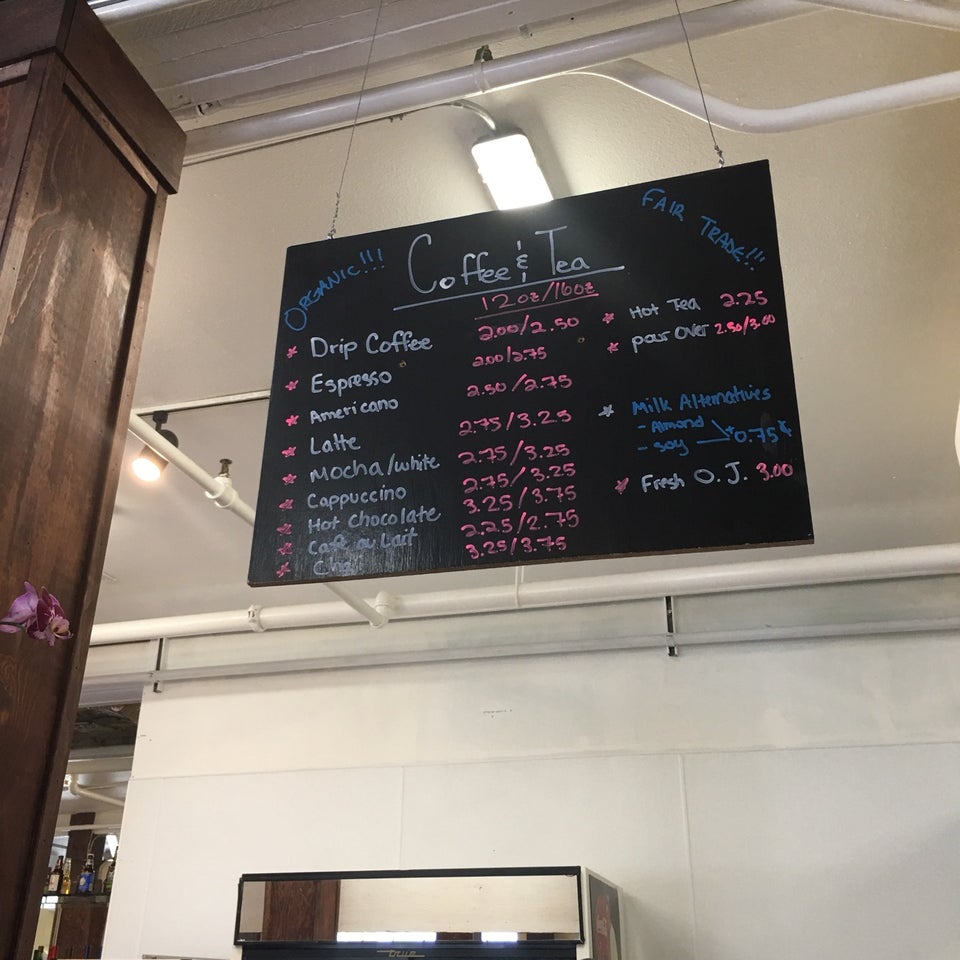 ORGANIC!!!
Coffee & Tea
FAIR TRADE!!!
12oz/16oz
* Drip Coffee 2.00/2.50
* Espresso 2.00/2.75
* Americano 2.50/2.75
* Latte 2.75/3.25
* Mocha/white 2.75/3.25
* Cappuccino 2.75/3.25
* Hot Chocolate 3.25/3.75
* Café au Lait 2.25/2.75
* Chai 3.25/3.75
* Hot Tea 2.25
* pour over 2.50/3.00
* Milk Alternatives
- Almond
- Soy
0.75
* Fresh O.J. 3.00
true